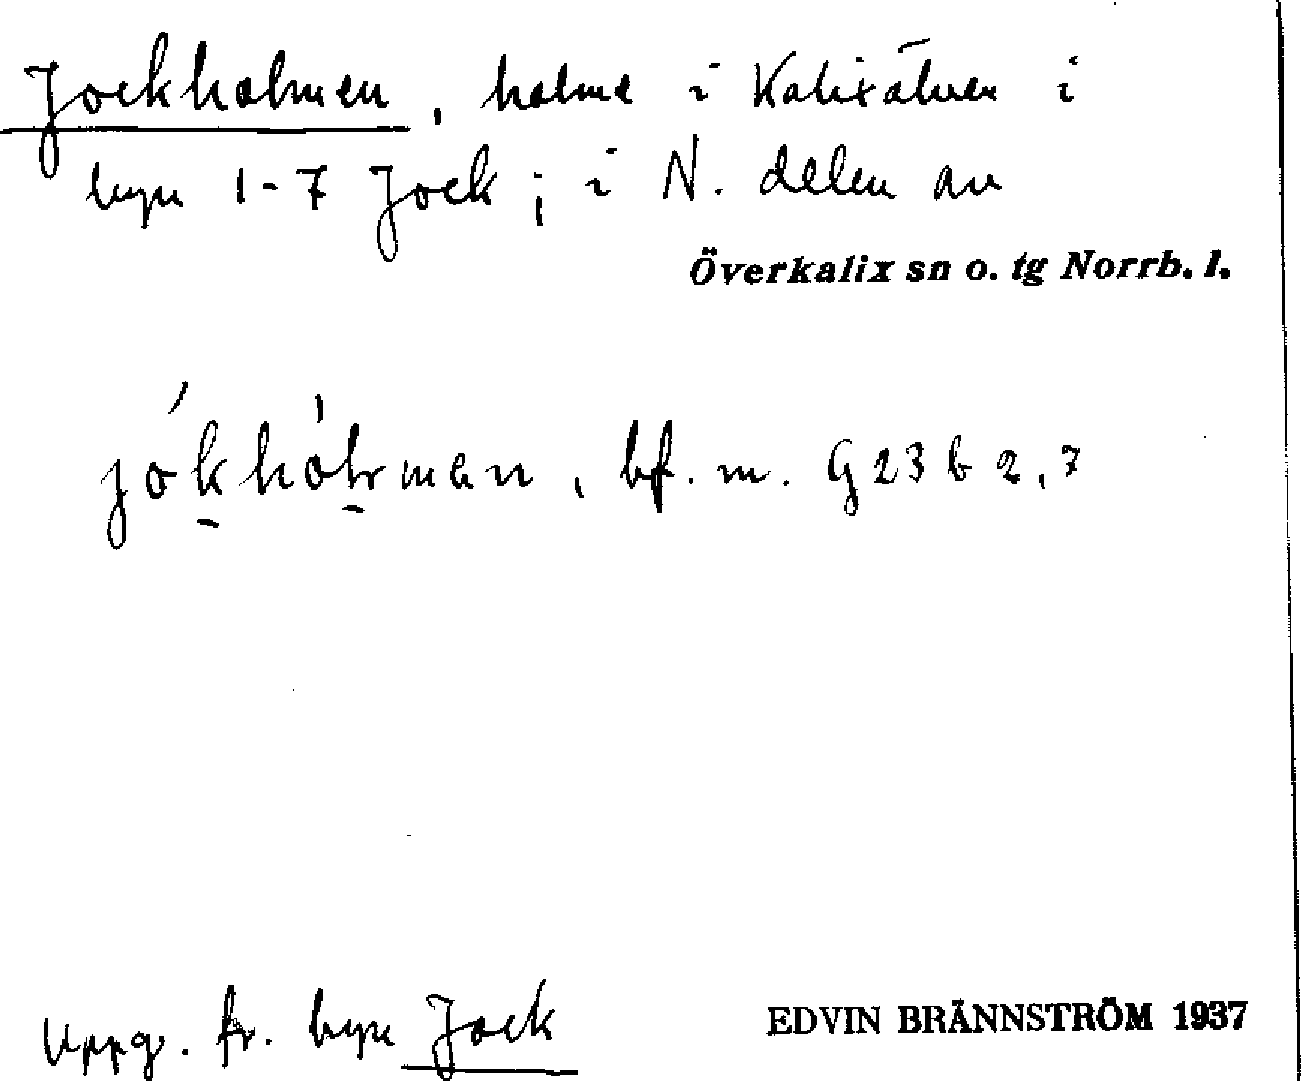 Jockholmen, holme i Kalixälven i
byn 1-7 Jock; i N. delen av
Överkalix sn o. tg Norrb. l.
jókhólmen, bf. m. G 23 b 2,7
Uppg. fr. byn Jock
EDVIN BRÄNNSTRÖM 1937